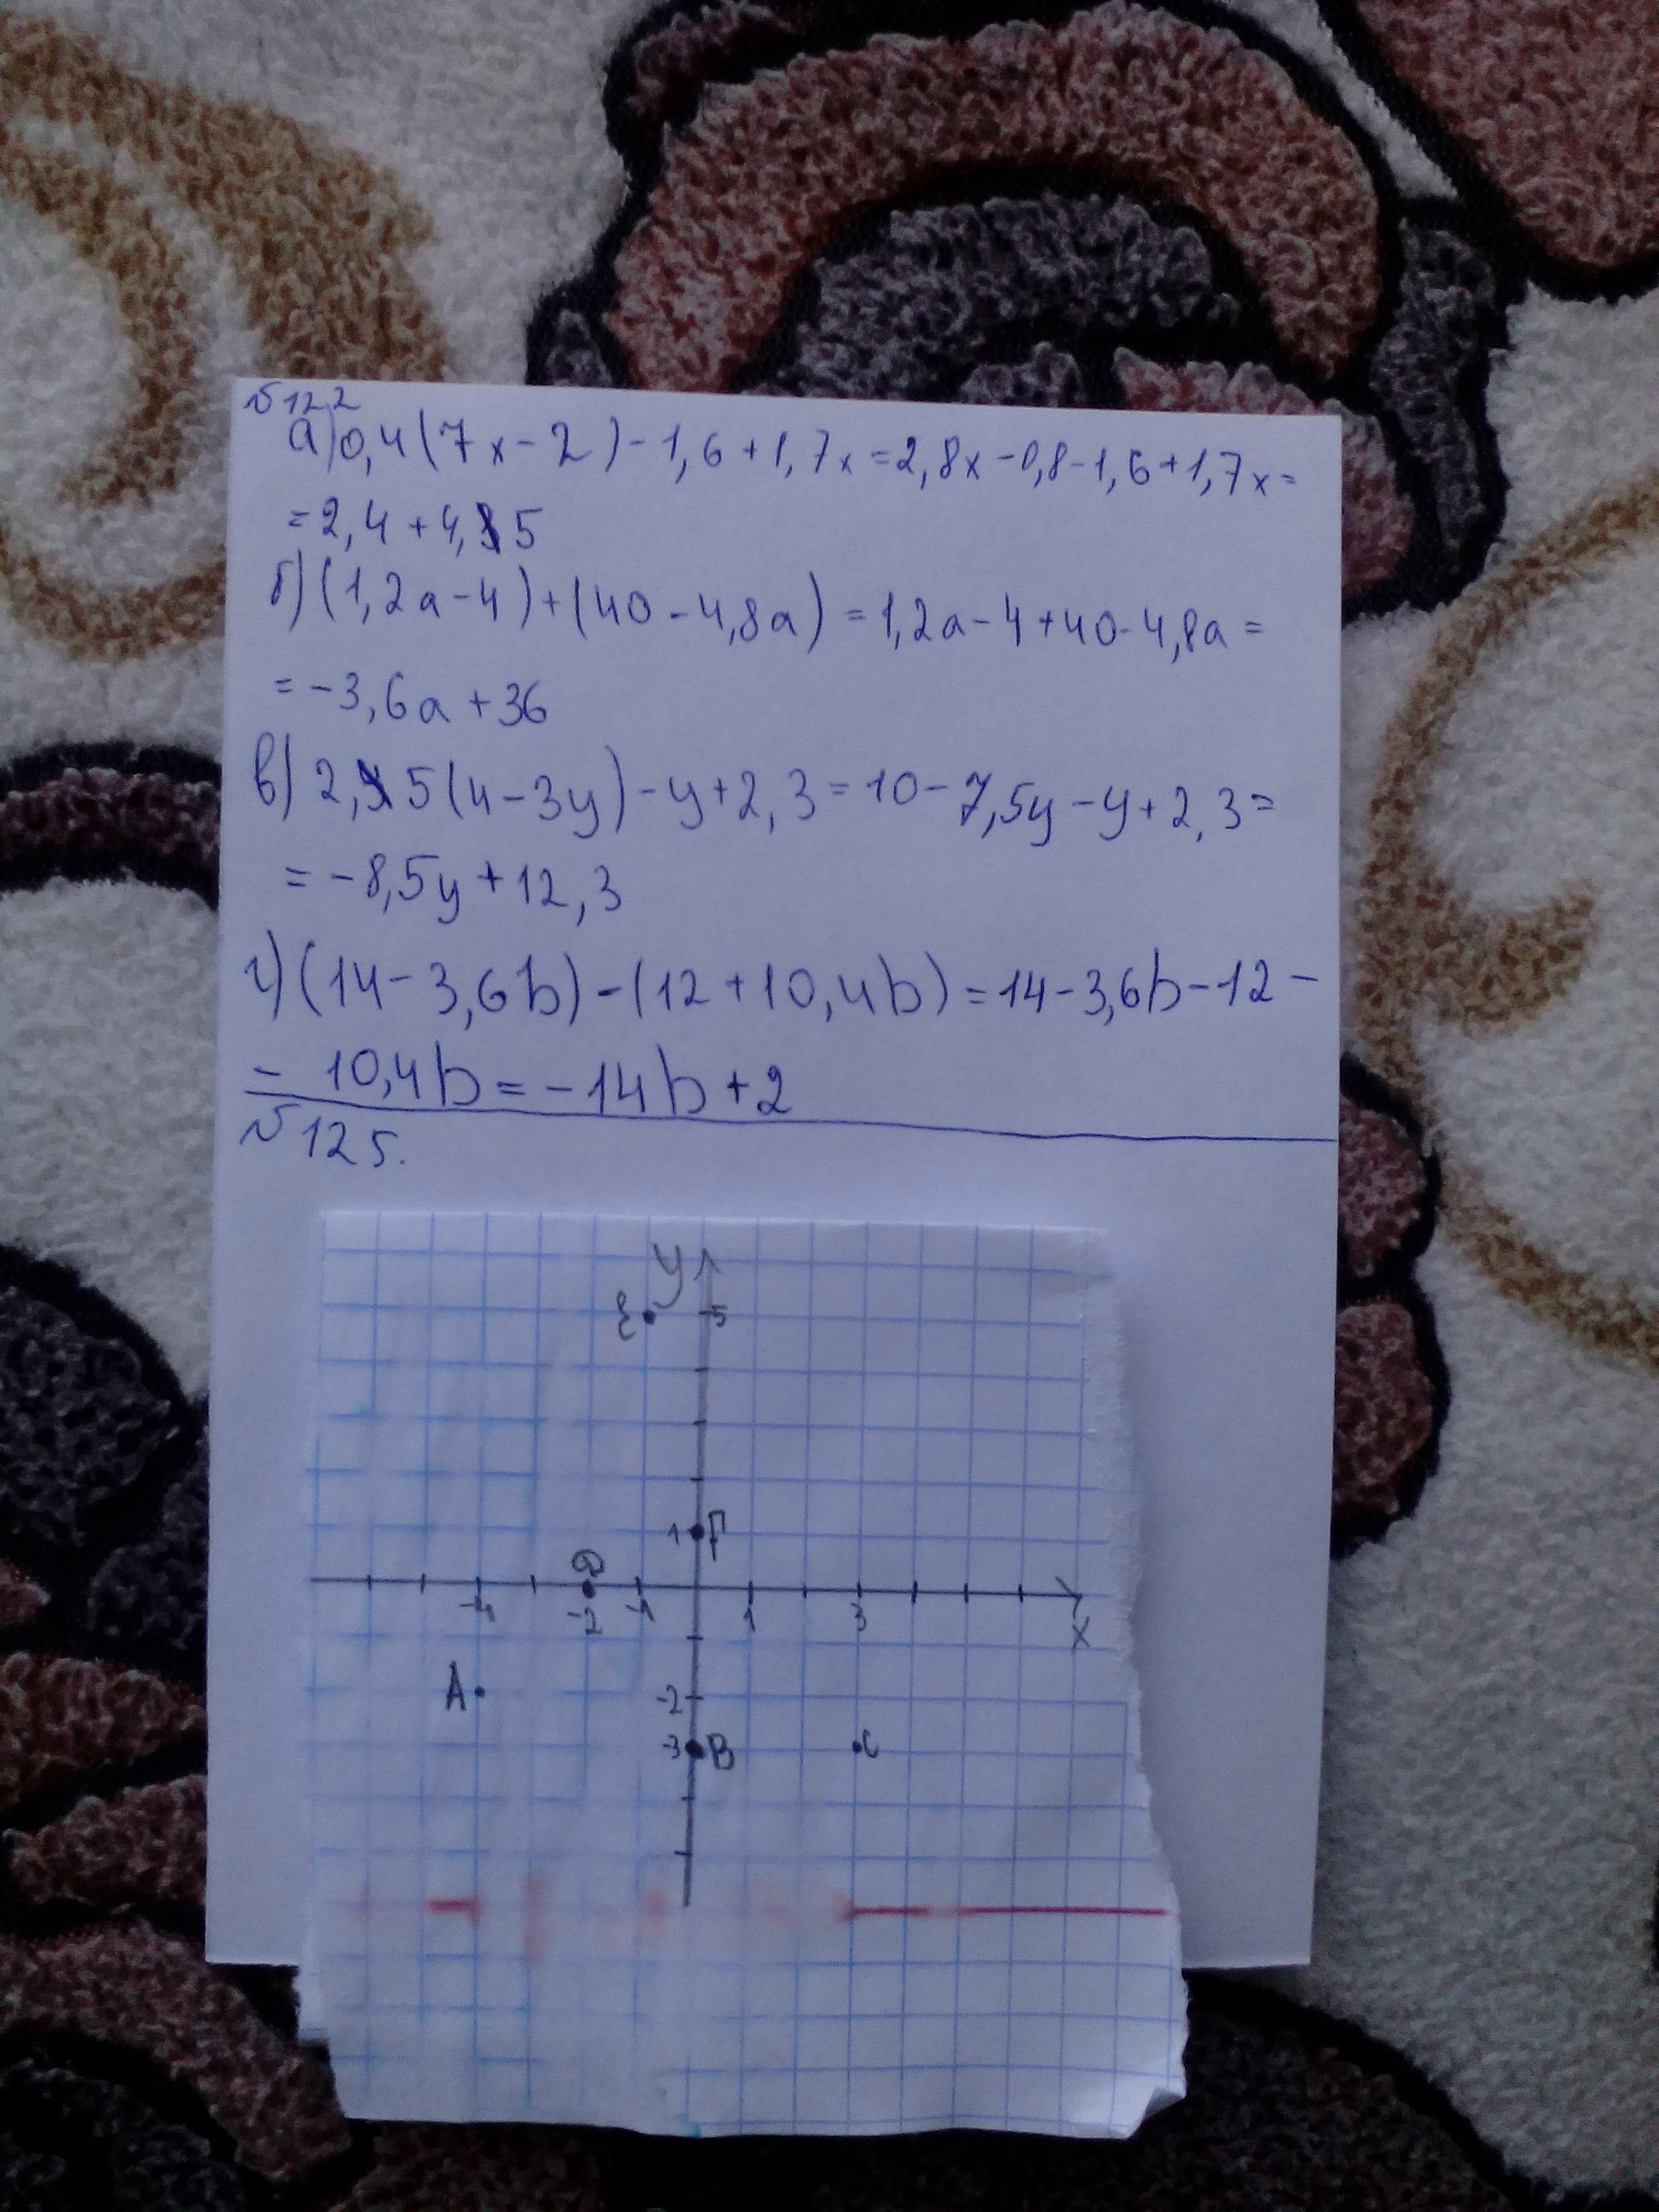 №122
а) 0,4(7x-2)-1,6+1,7x=2,8x-0,8-1,6+1,7x=
=2,4+4,5
б) (1,2a-4)+(40-4,8a)=1,2a-4+40-4,8a=
=-3,6a+36
в) 2,5(4-3y)-y+2,3=10-7,5y-y+2,3=
=-8,5y+12,3
г) (14-3,6b)-(12+10,4b)=14-3,6b-12-
- 10,4b=-14b+2
№125.
y
E 5
1 F
D
-4 -2 -1 1 3
x
A -2
-3 B C